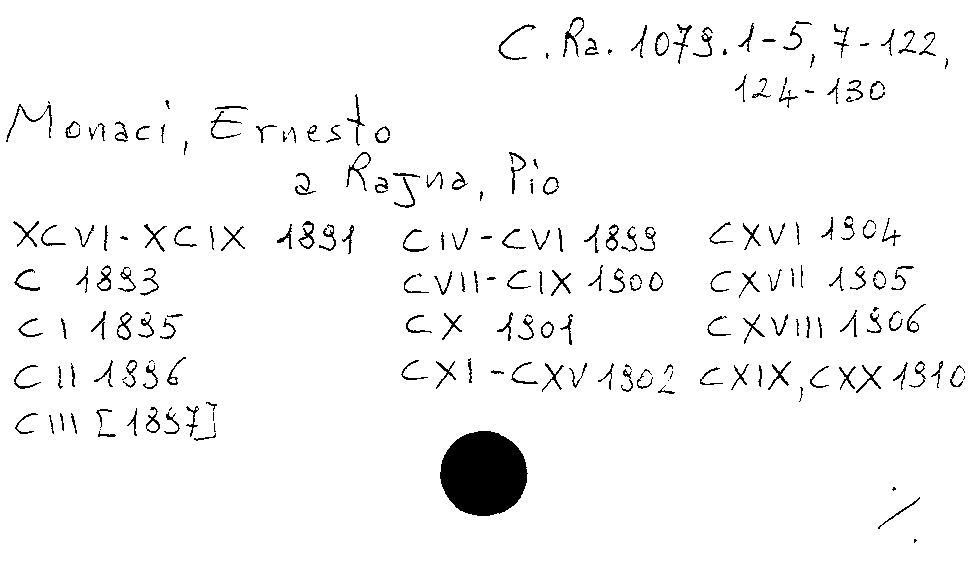 C. Ra. 1079. 1-5, 7-122,
124-130
Monaci, Ernesto
a Rajna, Pio
XCVI-XCIX 1891 CIV-CVI 1899 CXVI 1904
C 1893 CVII-CIX 1900 CXVII 1905
CI 1895 CX 1901 CXVIII 1906
CII 1896 CXI-CXV 1902 CXIX, CXX 1910
CIII [1897]
./.